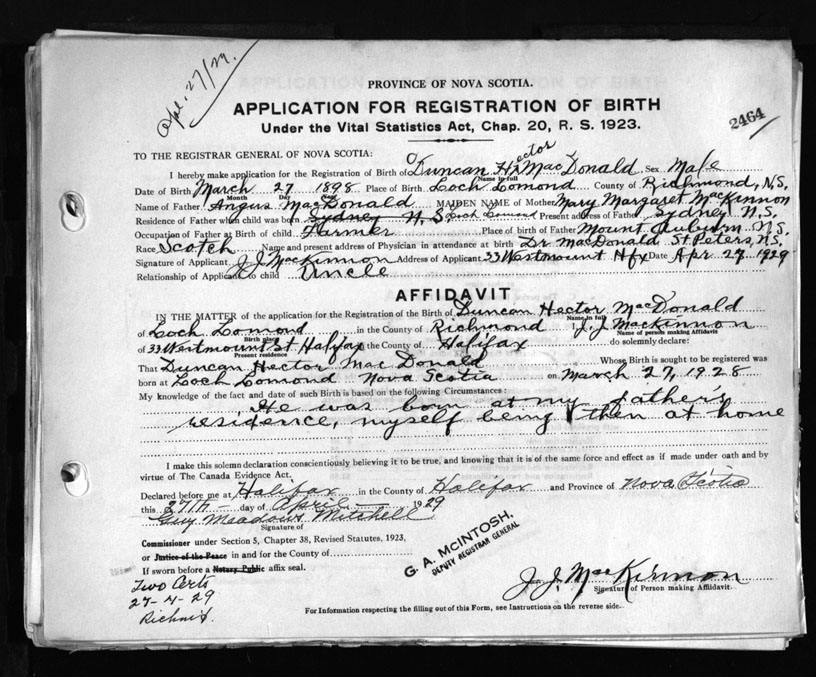 Apl. 27/29.
PROVINCE OF NOVA SCOTIA.
APPLICATION FOR REGISTRATION OF BIRTH
2464
Under the Vital Statistics Act, Chap. 20, R. S. 1923.
TO THE REGISTRAR GENERAL OF NOVA SCOTIA:
I hereby make application for the Registration of Birth of Duncan Hector MacDonald Sex Male
Name in full
Date of Birth March 27 1898 Place of Birth Loch Lomond County of Richmond, N.S.
Month Day Year
Name of Father Angus MacDonald MAIDEN NAME of Mother Mary Margaret MacKinnon
Residence of Father when child was born Sydney N.S. Loch Lomond Present address of Father Sydney N.S.
Occupation of Father at Birth of child Farmer Place of birth of Father Mount Auburn N.S.
Race Scotch Name and present address of Physician in attendance at birth Dr MacDonald St Peters, N.S.
Signature of Applicant J J MacKinnon Address of Applicant 33 Westmount Hfx Date Apr 27 1929
Relationship of Applicant to child Uncle
AFFIDAVIT
IN THE MATTER of the application for the Registration of the Birth of Duncan Hector MacDonald
Name in full
of Loch Lomond in the County of Richmond I, J. J MacKinnon
Birth place Name of person making Affidavit
of 33 Westmount St Halifax in the County of Halifax do solemnly declare:
Present residence
That Duncan Hector MacDonald Whose Birth is sought to be registered was
born at Loch Lomond Nova Scotia on March 27, 1928
My knowledge of the fact and date of such Birth is based on the following Circumstances:
He was born at my father's
residence, myself being then at home
I make this solemn declaration conscientiously believing it to be true, and knowing that it is of the same force and effect as if made under oath and by
virtue of The Canada Evidence Act.
Declared before me at Halifax in the County of Halifax and Province of Nova Scotia
this 27th day of April 1929
Guy Meadows Mitchell
Signature of
Commissioner under Section 5, Chapter 38, Revised Statutes, 1923,
or Justice of the Peace in and for the County of
If sworn before a Notary Public affix seal.
G. A. McINTOSH,
DEPUTY REGISTRAR GENERAL
Two Certs
27-4-29
J. J. MacKinnon
Signature of Person making Affidavit.
For Information respecting the filling out of this Form, see Instructions on the reverse side.